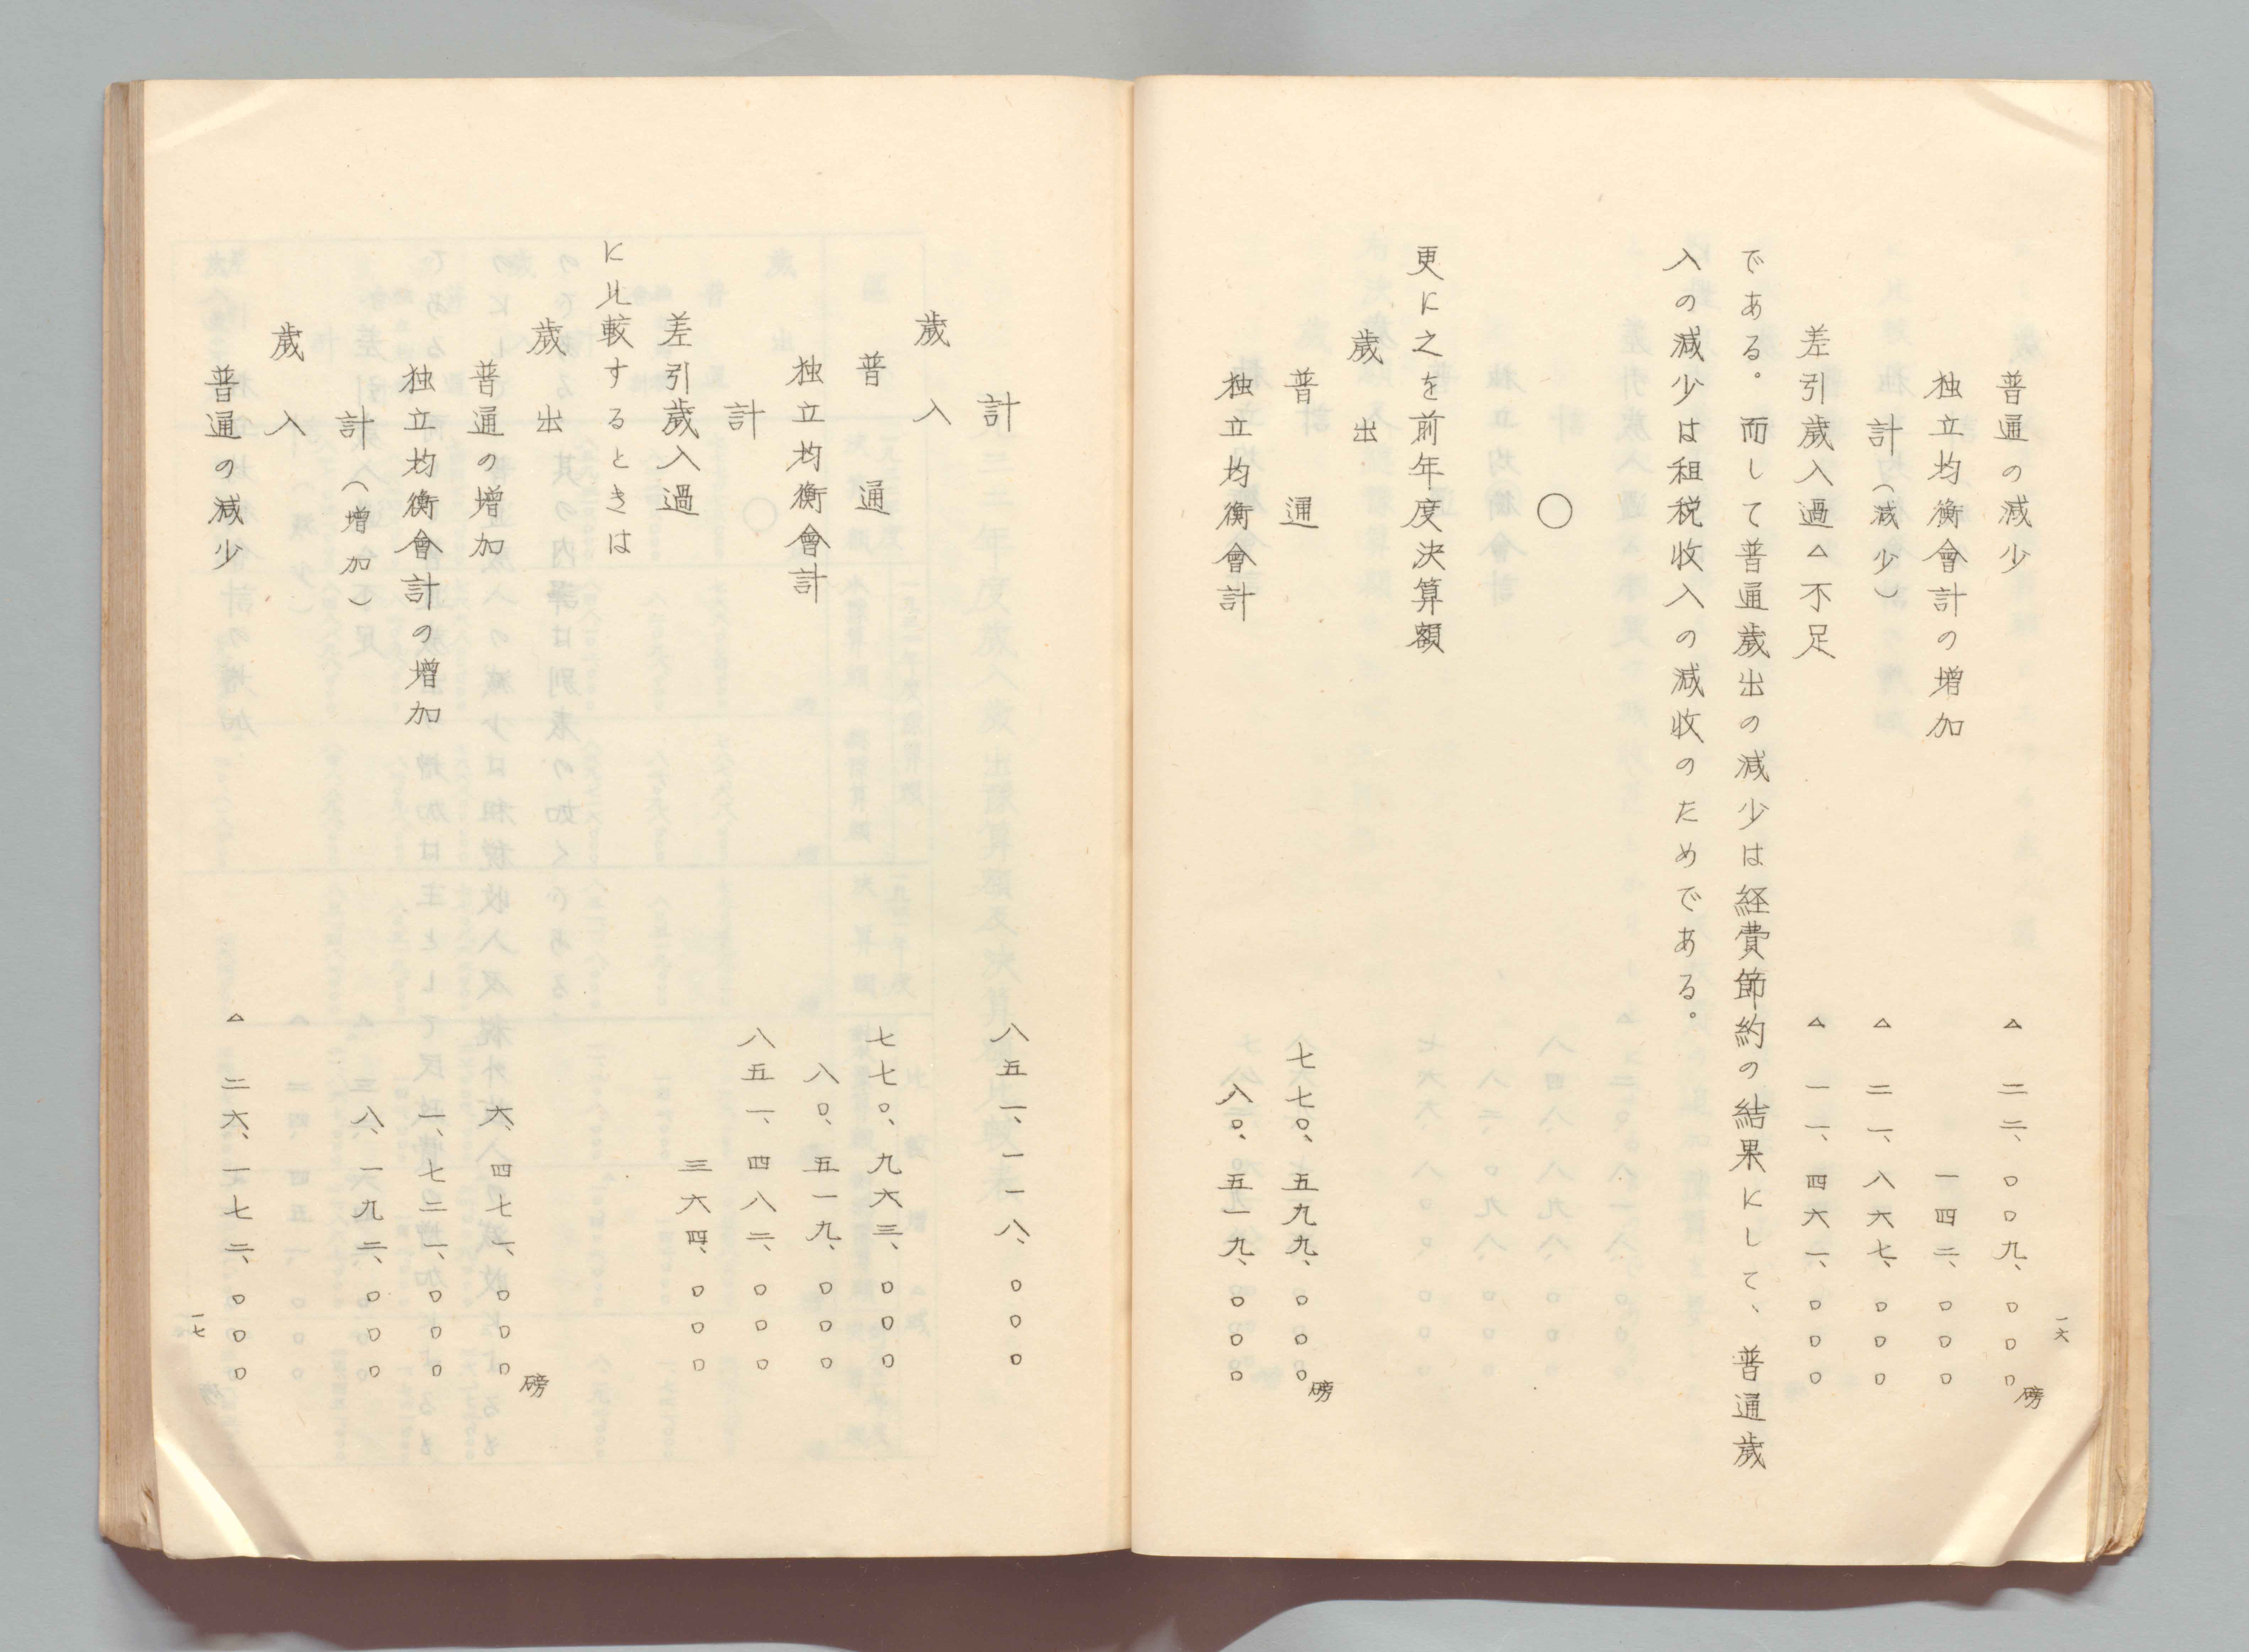 一六
普通の減少 △二二、〇〇九、〇〇〇磅
独立均衡會計の増加 一四二、〇〇〇
計(減少) △二一、八六七、〇〇〇
差引歳入過△不足 △一一、四六一、〇〇〇
である。而して普通歳出の減少は経費節約の結果にして、普通歳
入の減少は租税收入の減收のためである。
〇
更に之を前年度決算額
歳出
普通 七七〇、五九九、〇〇〇磅
独立均衡會計 八〇、五一九、〇〇〇
計 八五一、一一八、〇〇〇
歳入
普通 七七〇、九六三、〇〇〇
独立均衡會計 八〇、五一九、〇〇〇
計 八五一、四八二、〇〇〇
差引歳入過 三六四、〇〇〇
に比較するときは
歳出
普通の増加 六、四七一、〇〇〇磅
独立均衡會計の増加 一、七二一、〇〇〇
計(増加) 八、一九二、〇〇〇
歳入
普通の減少 △二六、一七二、〇〇〇
一七